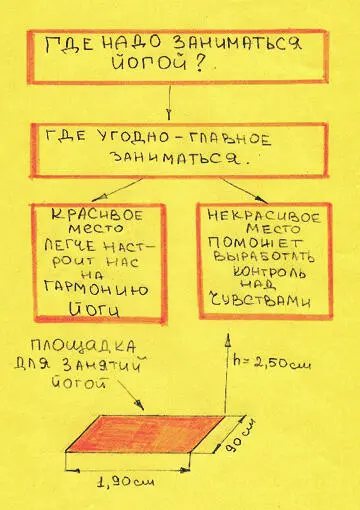 ГДЕ НАДО ЗАНИМАТЬСЯ
ЙОГОЙ?
ГДЕ УГОДНО-ГЛАВНОЕ
ЗАНИМАТЬСЯ.
КРАСИВОЕ
МЕСТО
ЛЕГЧЕ НАСТ-
РОИТ НАС
НА
ГАРМОНИЮ
ЙОГИ
НЕКРАСИВОЕ
МЕСТО
ПОМОЖЕТ
ВЫРАБОТАТЬ
КОНТРОЛЬ
НАД
ЧУВСТВАМИ
ПЛОЩАДКА
ДЛЯ ЗАНЯТИЙ
ЙОГОЙ
h=2,50см
90см
1,90см